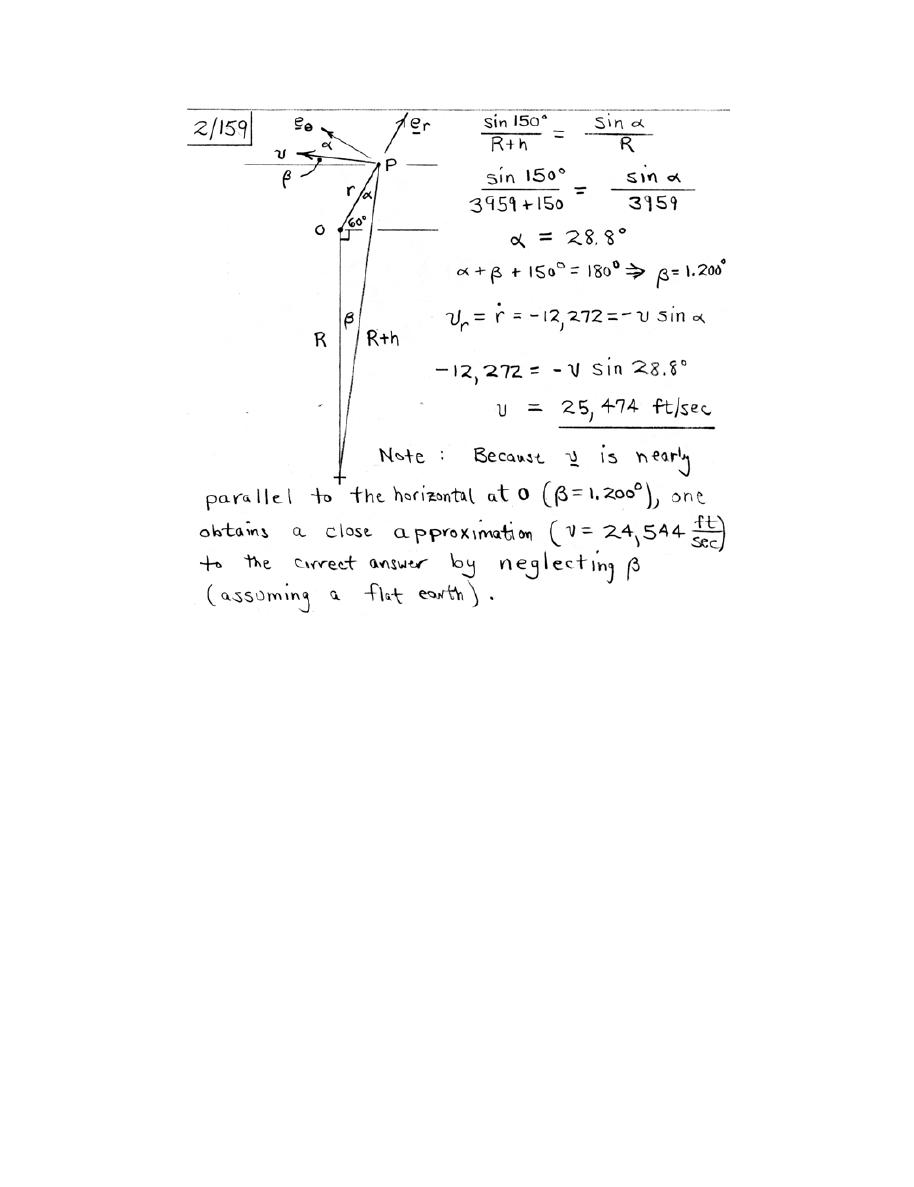 2/159
e_θ
e_r
sin 150° / (R+h) = sin α / R
v
α
β
P
sin 150° / (3959+150) = sin α / 3959
r
α
O
60°
α = 28.8°
α + β + 150° = 180° ⇒ β = 1.200°
R
β
R+h
v_r = ṙ = -12,272 = -v sin α
-12,272 = -v sin 28.8°
v = 25,474 ft/sec
Note : Because v is nearly
parallel to the horizontal at O (β = 1.200°), one
obtains a close approximation (v = 24,544 ft/sec)
to the correct answer by neglecting β
(assuming a flat earth).